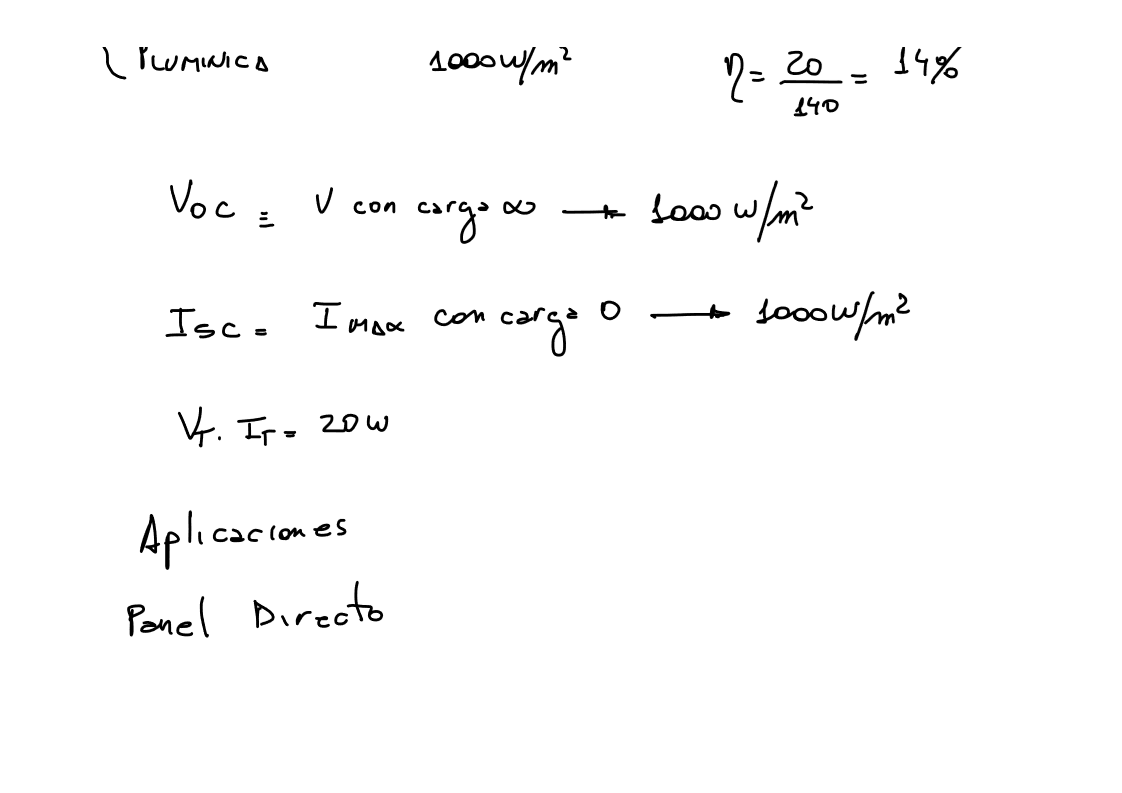 P LUMINICA 1000 W/m² η = 20/140 = 14%
Voc ≡ V con carga ∞ → 1000 W/m²
Isc = I MAX con carga 0 → 1000 W/m²
VT. IT = 20 W
Aplicaciones
Panel Directo